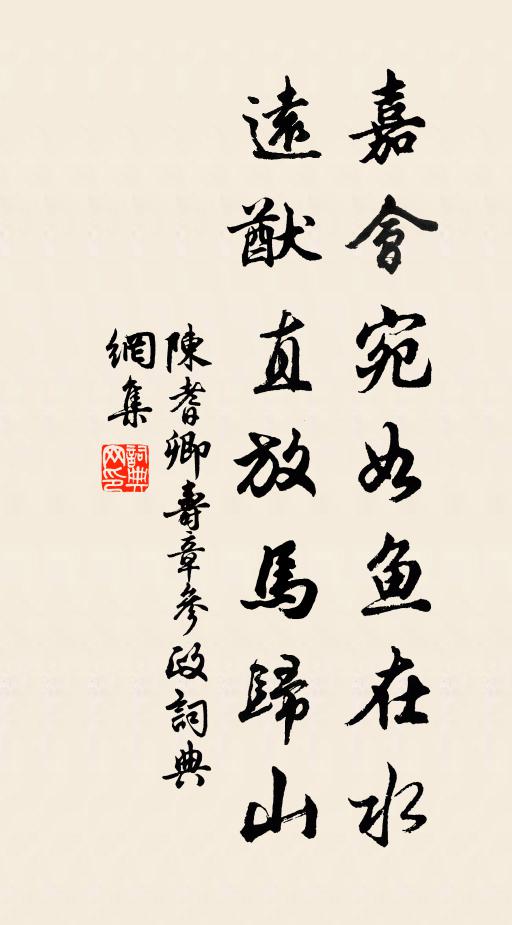 嘉會宛如魚在水
遠猷直放馬歸山
陳耆卿壽章參政詞典
網集
詞典
网印